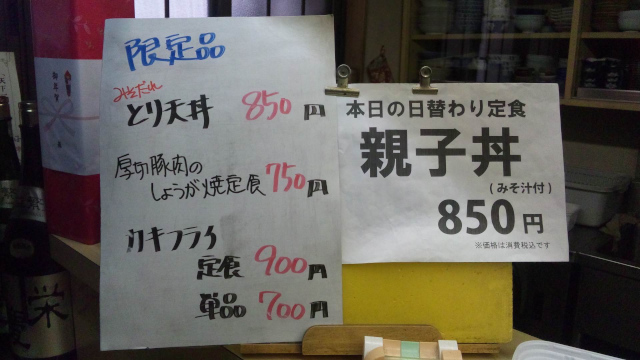 限定品
みそだれ
とり天丼 850円
厚切豚肉の
しょうが焼定食 750円
カキフライ
定食 900円
単品 700円
本日の日替わり定食
親子丼
(みそ汁付)
850円
※価格は消費税込です
御年賀
栄